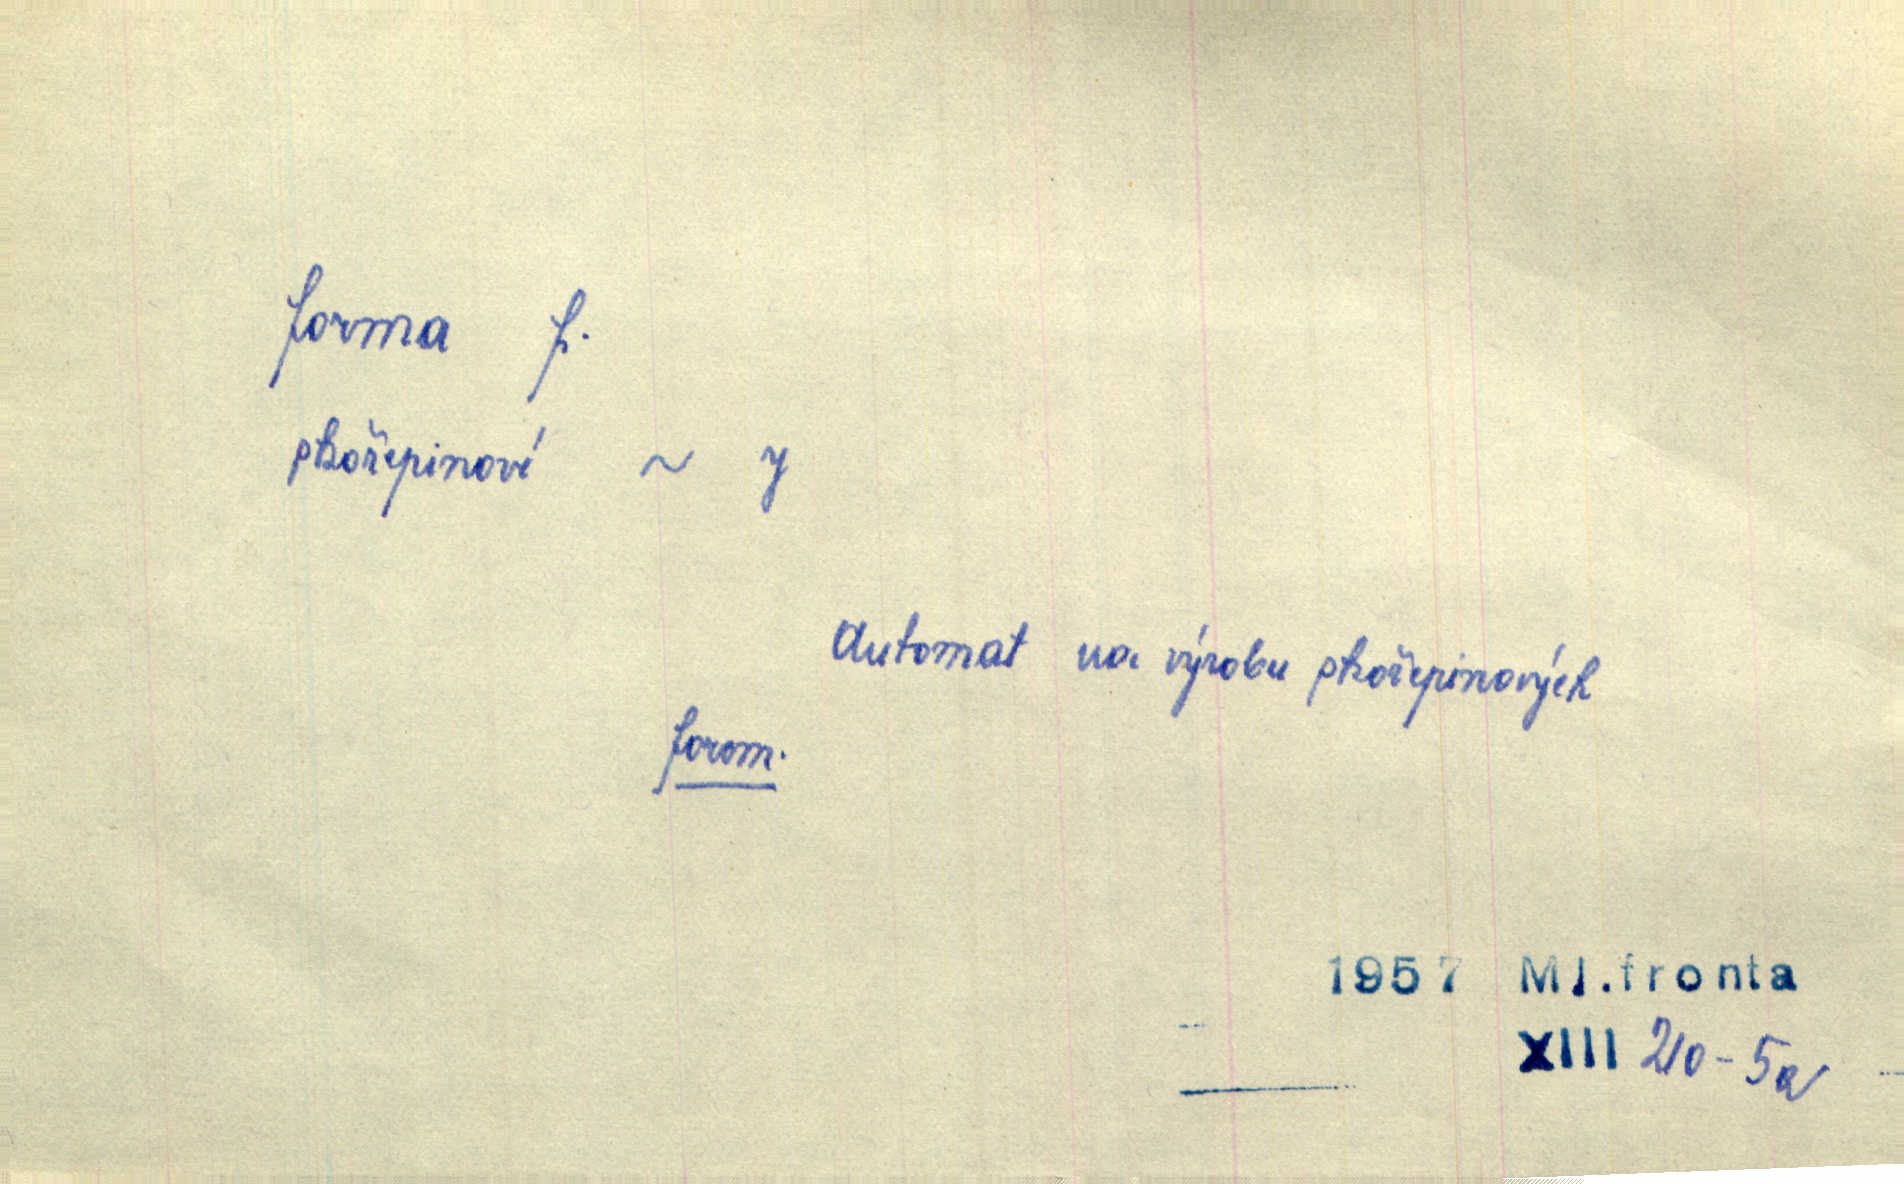 forma f.
skořepinové ~ y
Automat na výrobu skořepinových
forem.
1957 Ml.fronta
XIII 210-5a